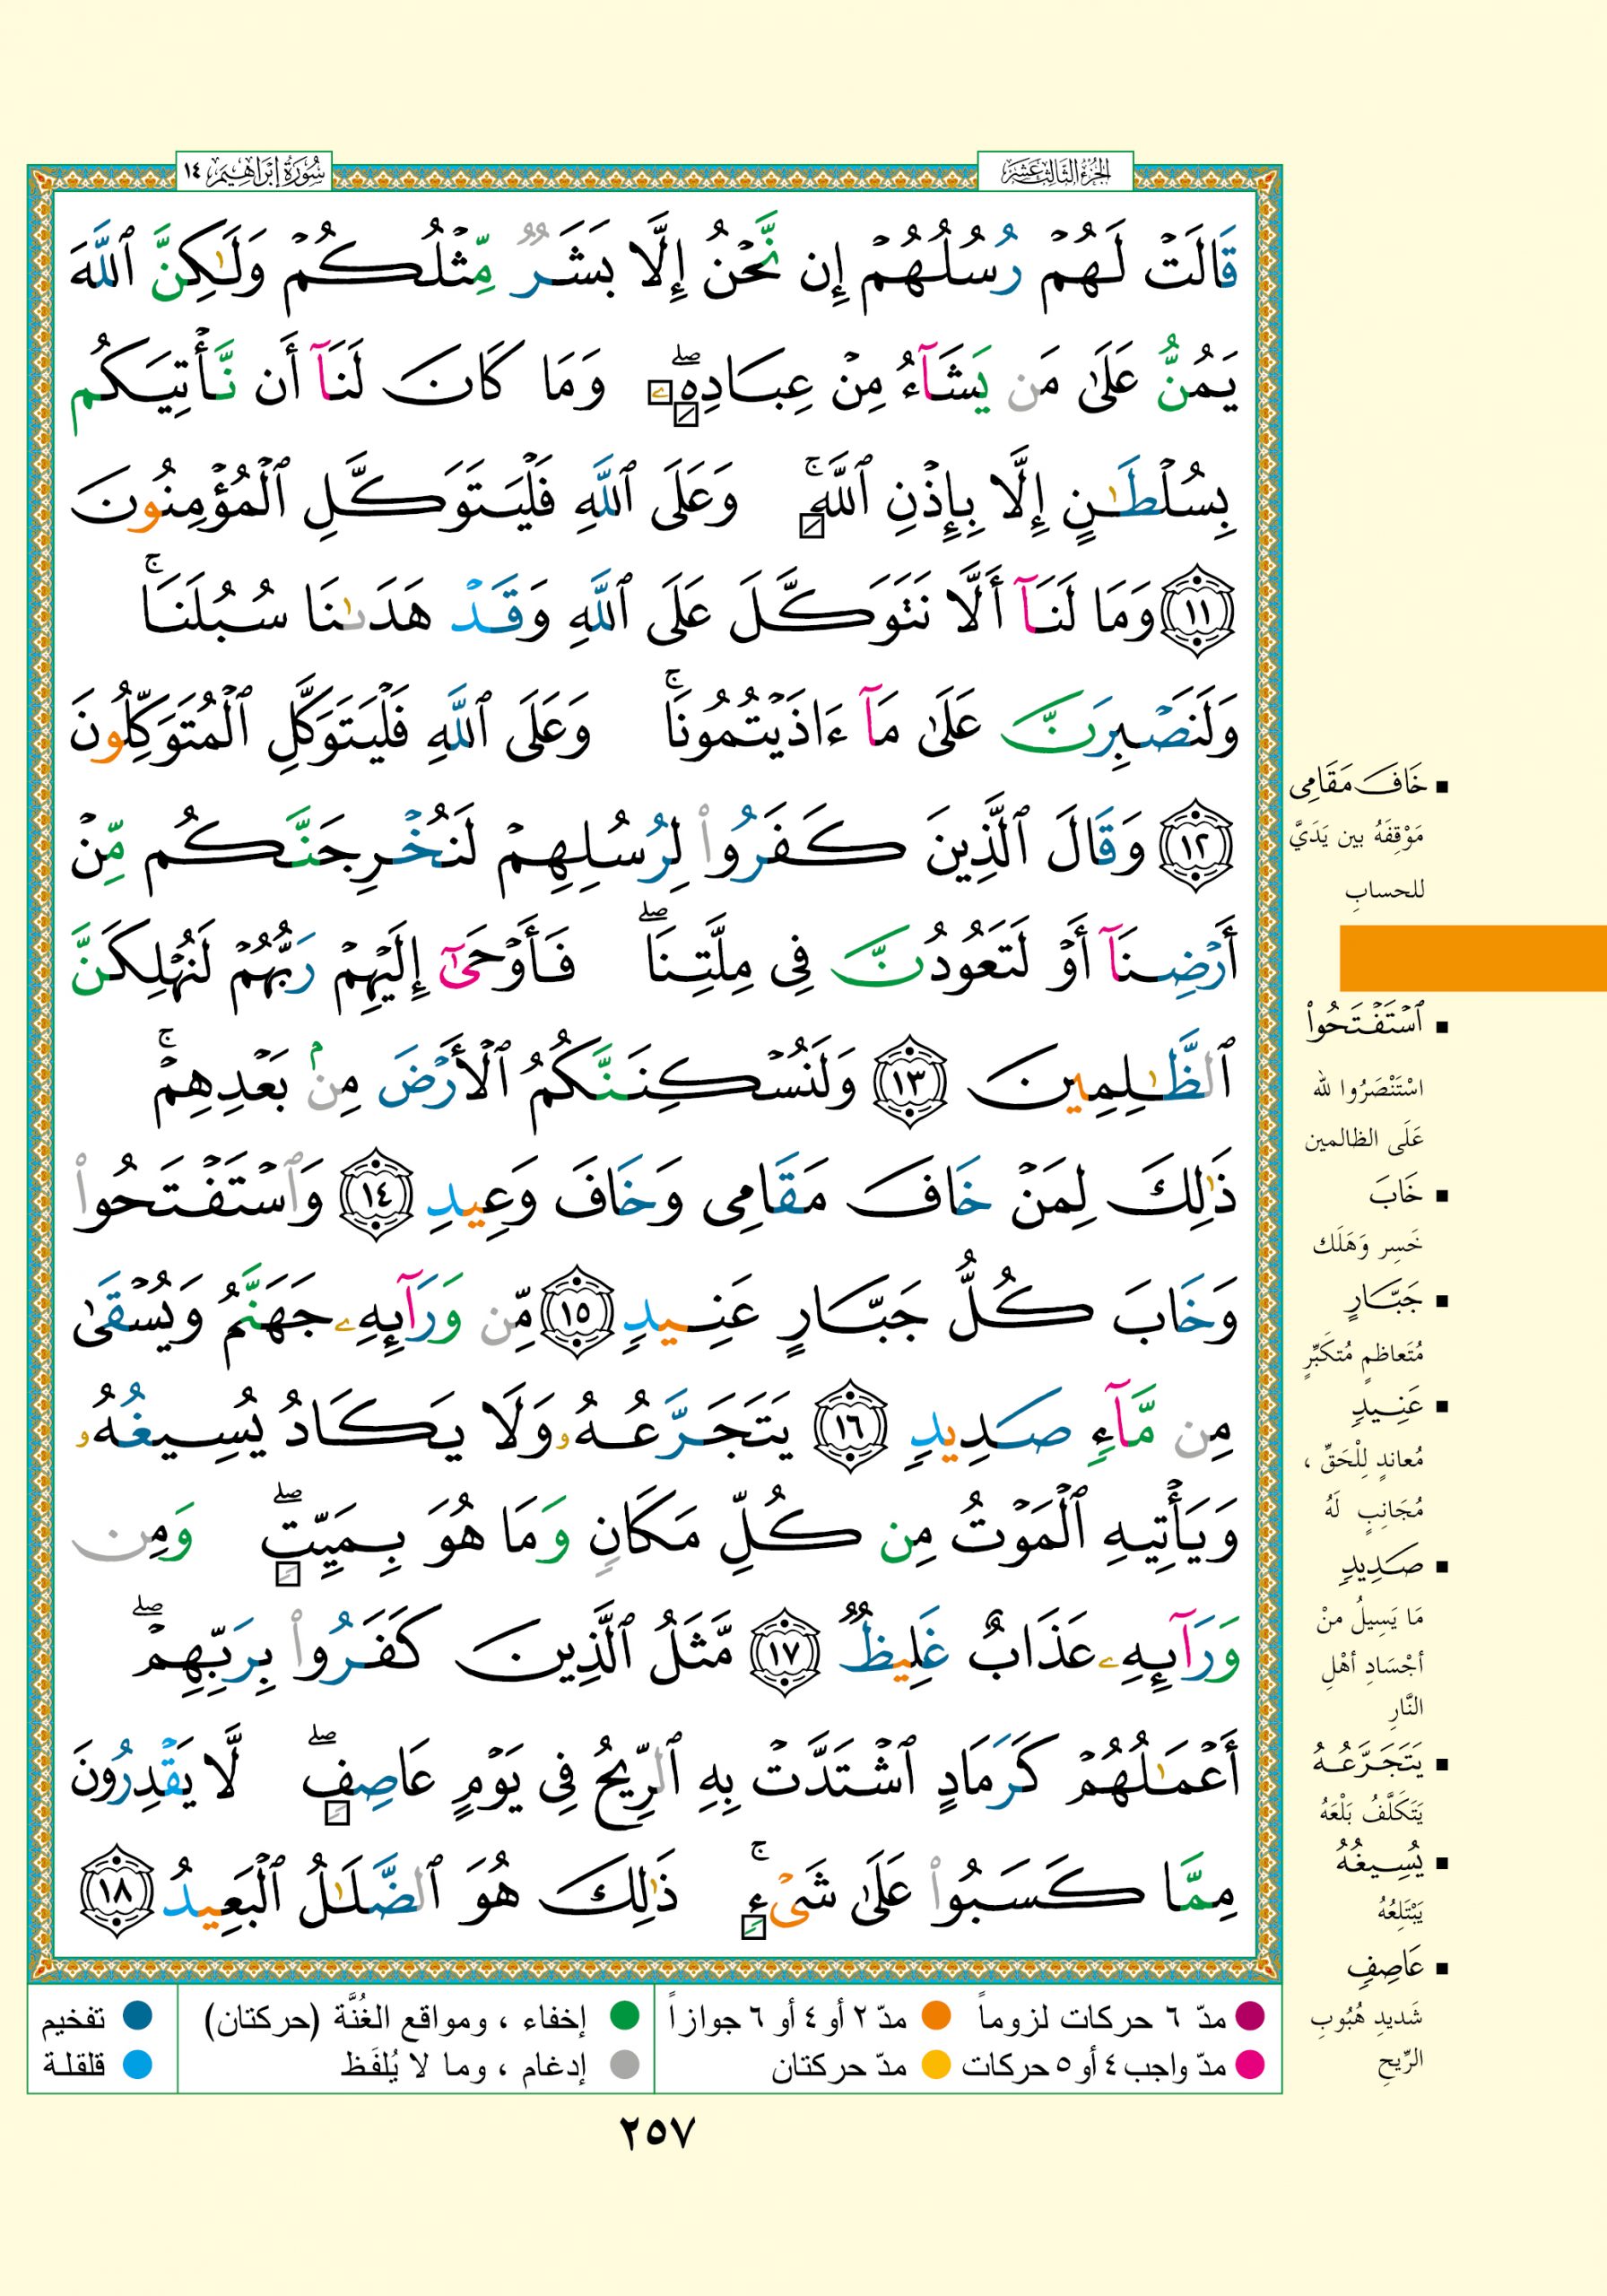 الجزء الثالث عشر
سورة إبراهيم ١٤
قَالَتْ لَهُمْ رُسُلُهُمْ إِن نَّحْنُ إِلَّا بَشَرٌ مِّثْلُكُمْ وَلَٰكِنَّ ٱللَّهَ
يَمُنُّ عَلَىٰ مَن يَشَآءُ مِنْ عِبَادِهِۦ ۖ وَمَا كَانَ لَنَآ أَن نَّأْتِيَكُم
بِسُلْطَٰنٍ إِلَّا بِإِذْنِ ٱللَّهِ ۚ وَعَلَى ٱللَّهِ فَلْيَتَوَكَّلِ ٱلْمُؤْمِنُونَ
١١ وَمَا لَنَآ أَلَّا نَتَوَكَّلَ عَلَى ٱللَّهِ وَقَدْ هَدَىٰنَا سُبُلَنَا ۚ
وَلَنَصْبِرَنَّ عَلَىٰ مَآ ءَاذَيْتُمُونَا ۚ وَعَلَى ٱللَّهِ فَلْيَتَوَكَّلِ ٱلْمُتَوَكِّلُونَ
١٢ وَقَالَ ٱلَّذِينَ كَفَرُوا۟ لِرُسُلِهِمْ لَنُخْرِجَنَّكُم مِّنْ
أَرْضِنَآ أَوْ لَتَعُودُنَّ فِى مِلَّتِنَا ۖ فَأَوْحَىٰٓ إِلَيْهِمْ رَبُّهُمْ لَنُهْلِكَنَّ
ٱلظَّٰلِمِينَ ١٣ وَلَنُسْكِنَنَّكُمُ ٱلْأَرْضَ مِنۢ بَعْدِهِمْ ۚ
ذَٰلِكَ لِمَنْ خَافَ مَقَامِى وَخَافَ وَعِيدِ ١٤ وَٱسْتَفْتَحُوا۟
وَخَابَ كُلُّ جَبَّارٍ عَنِيدٍ ١٥ مِّن وَرَآئِهِۦ جَهَنَّمُ وَيُسْقَىٰ
مِن مَّآءٍ صَدِيدٍ ١٦ يَتَجَرَّعُهُۥ وَلَا يَكَادُ يُسِيغُهُۥ
وَيَأْتِيهِ ٱلْمَوْتُ مِن كُلِّ مَكَانٍ وَمَا هُوَ بِمَيِّتٍ ۖ وَمِن
وَرَآئِهِۦ عَذَابٌ غَلِيظٌ ١٧ مَّثَلُ ٱلَّذِينَ كَفَرُوا۟ بِرَبِّهِمْ ۖ
أَعْمَٰلُهُمْ كَرَمَادٍ ٱشْتَدَّتْ بِهِ ٱلرِّيحُ فِى يَوْمٍ عَاصِفٍ ۖ لَّا يَقْدِرُونَ
مِمَّا كَسَبُوا۟ عَلَىٰ شَىْءٍ ۚ ذَٰلِكَ هُوَ ٱلضَّلَٰلُ ٱلْبَعِيدُ ١٨
خَافَ مَقَامِى
مَوْقِفَهُ بين يَدَيَّ
للحسابِ
ٱسْتَفْتَحُوا۟
اسْتَنْصَرُوا لله
عَلَى الظالمين
خَابَ
خَسِر وَهَلَك
جَبَّارٍ
مُتَعاظمٍ مُتكَبِّرٍ
عَنِيدٍ
مُعاندٍ لِلْحَقِّ ،
مُجَانِبٍ لَهُ
صَدِيدٍ
مَا يَسِيلُ منْ
أجْسَادِ أهْلِ
النَّارِ
يَتَجَرَّعُهُ
يَتَكَلَّفُ بَلْعَهُ
يُسِيغُهُ
يَبْتَلِعُهُ
عَاصِفٍ
شَديدِ هُبُوبِ
الرِّيحِ
مدّ ٦ حركات لزوماً مدّ ٢ أو ٤ أو ٦ جوازاً إخفاء ، ومواقع الغُنَّة (حركتان) تفخيم
مدّ واجب ٤ أو ٥ حركات مدّ حركتان إدغام ، وما لا يُلفَظ قلقلة
٢٥٧